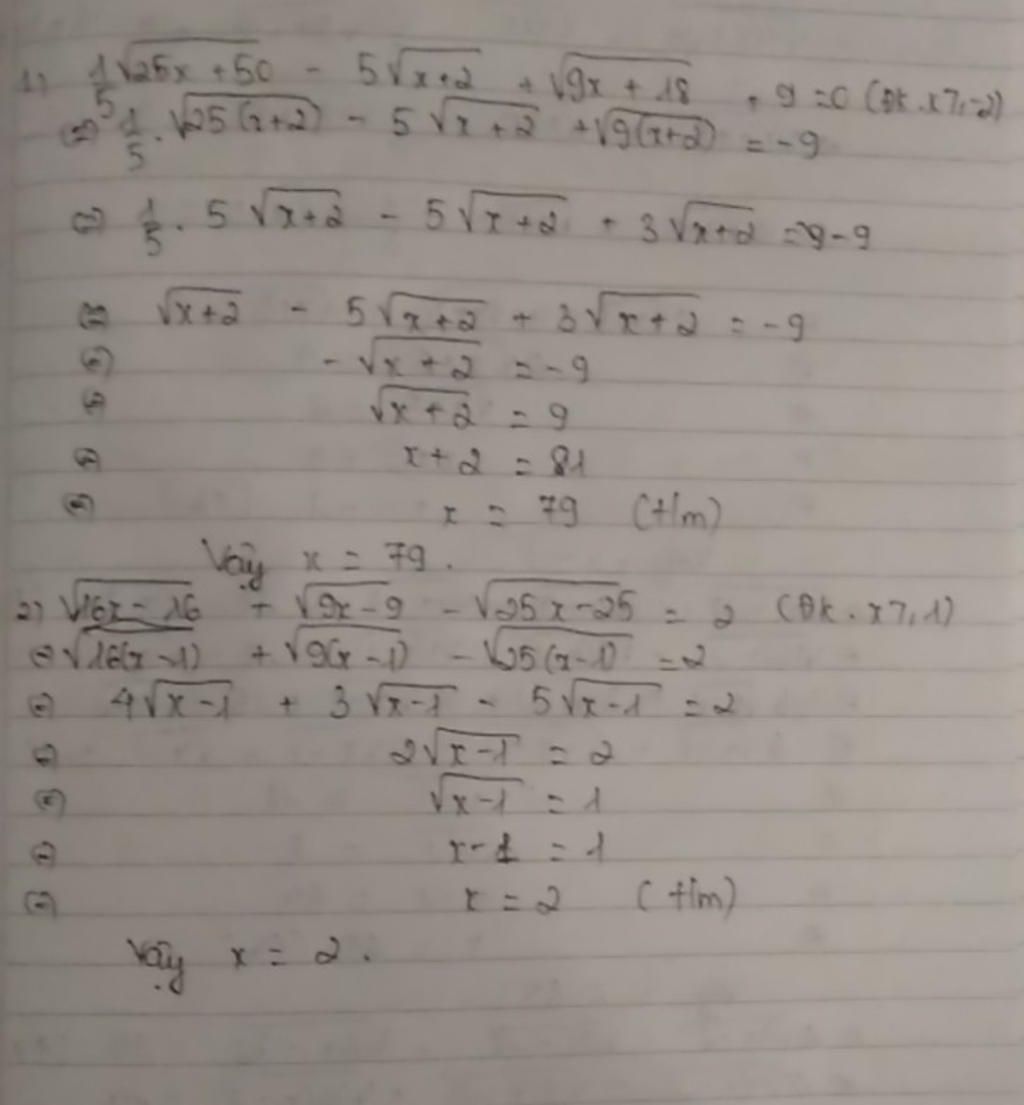 1) 1/5 √(25x + 50) - 5√(x+2) + √(9x + 18) + 9 = 0 (Đk. x ≥ -2)
⇔ 1/5 . √(25(x+2)) - 5√(x+2) + √(9(x+2)) = -9
⇔ 1/5 . 5√(x+2) - 5√(x+2) + 3√(x+2) = -9
⇔ √(x+2) - 5√(x+2) + 3√(x+2) = -9
⇔ -√(x+2) = -9
⇔ √(x+2) = 9
⇔ x + 2 = 81
⇔ x = 79 (t/m)
Vậy x = 79.
2) √(16x - 16) + √(9x - 9) - √(25x - 25) = 2 (Đk. x ≥ 1)
⇔ √(16(x-1)) + √(9(x-1)) - √(25(x-1)) = 2
⇔ 4√(x-1) + 3√(x-1) - 5√(x-1) = 2
⇔ 2√(x-1) = 2
⇔ √(x-1) = 1
⇔ x - 1 = 1
⇔ x = 2 (t/m)
Vậy x = 2.